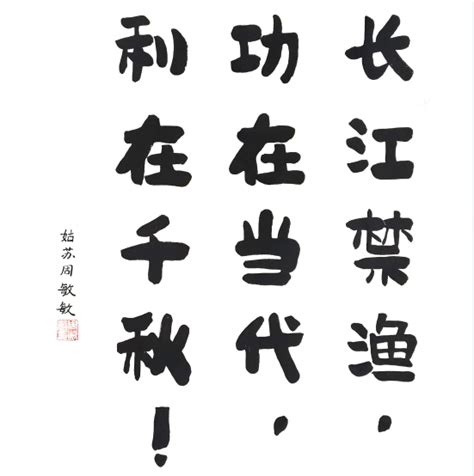 长江禁渔，
功在当代，
利在千秋！
姑苏周敏敏